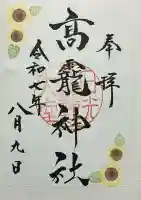 奉拝
高龗神社
令和七年
八月九日